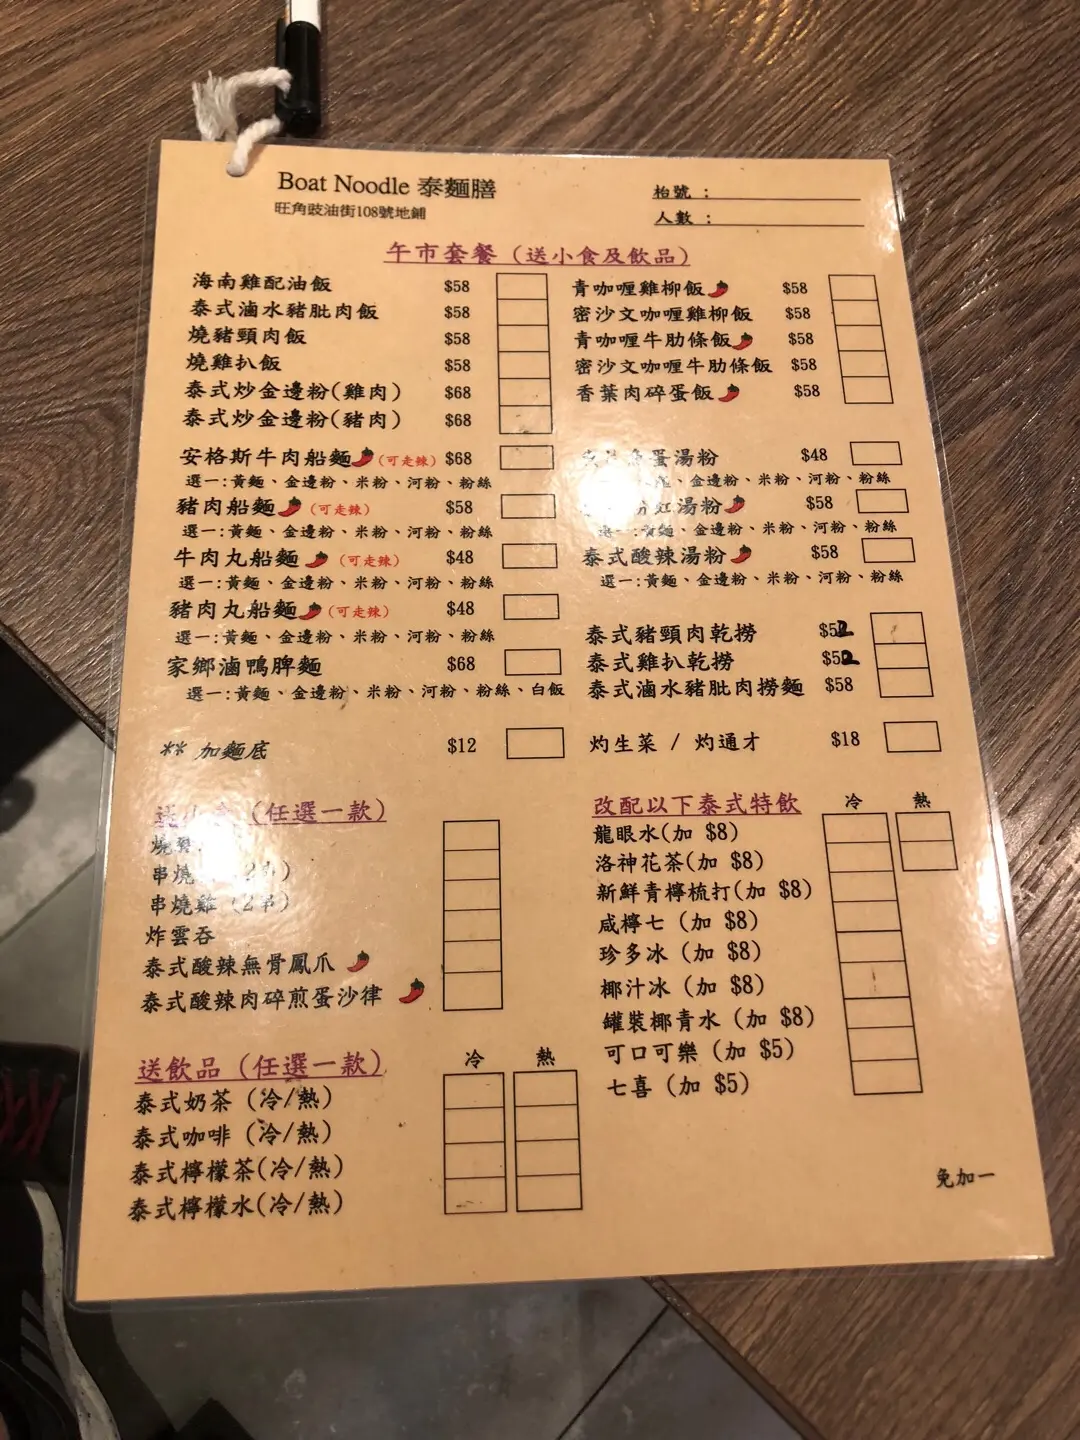 Boat Noodle 泰麵膳
旺角豉油街108號地鋪
枱號：
人數：
午市套餐（送小食及飲品）
海南雞配油飯 $58
泰式滷水豬肶肉飯 $58
燒豬頸肉飯 $58
燒雞扒飯 $58
泰式炒金邊粉(雞肉) $68
泰式炒金邊粉(豬肉) $68
安格斯牛肉船麵(可走辣) $68
選一:黃麵、金邊粉、米粉、河粉、粉絲
豬肉船麵(可走辣) $58
選一:黃麵、金邊粉、米粉、河粉、粉絲
牛肉丸船麵(可走辣) $48
選一:黃麵、金邊粉、米粉、河粉、粉絲
豬肉丸船麵(可走辣) $48
選一:黃麵、金邊粉、米粉、河粉、粉絲
家鄉滷鴨脾麵 $68
選一:黃麵、金邊粉、米粉、河粉、粉絲、白飯
** 加麵底 $12
青咖喱雞柳飯 $58
密沙文咖喱雞柳飯 $58
青咖喱牛肋條飯 $58
密沙文咖喱牛肋條飯 $58
香葉肉碎蛋飯 $58
蛋湯粉 $48
、金邊粉、米粉、河粉、粉絲
湯粉 $58
黃麵、金邊粉、米粉、河粉、粉絲
泰式酸辣湯粉 $58
選一:黃麵、金邊粉、米粉、河粉、粉絲
泰式豬頸肉乾撈 $52
泰式雞扒乾撈 $52
泰式滷水豬肶肉撈麵 $58
灼生菜 / 灼通才 $18
送小食（任選一款）
燒
串燒
串燒雞（2串）
炸雲吞
泰式酸辣無骨鳳爪
泰式酸辣肉碎煎蛋沙律
送飲品（任選一款） 冷 熱
泰式奶茶（冷/熱）
泰式咖啡（冷/熱）
泰式檸檬茶(冷/熱)
泰式檸檬水(冷/熱)
改配以下泰式特飲 冷 熱
龍眼水(加 $8)
洛神花茶(加 $8)
新鮮青檸梳打(加 $8)
咸檸七（加 $8)
珍多冰（加 $8)
椰汁冰（加 $8)
罐裝椰青水（加 $8)
可口可樂（加 $5)
七喜（加 $5)
免加一